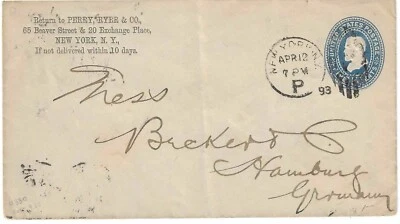 Return to PERRY, RYER & CO.,
65 Beaver Street & 20 Exchange Place,
NEW YORK, N. Y.,
If not delivered within 10 days.
NEW YORK, N.Y.
APR 12
7 PM
P
93
UNITED STATES POSTAGE
Mess
Beckert
Hamburg
Germany